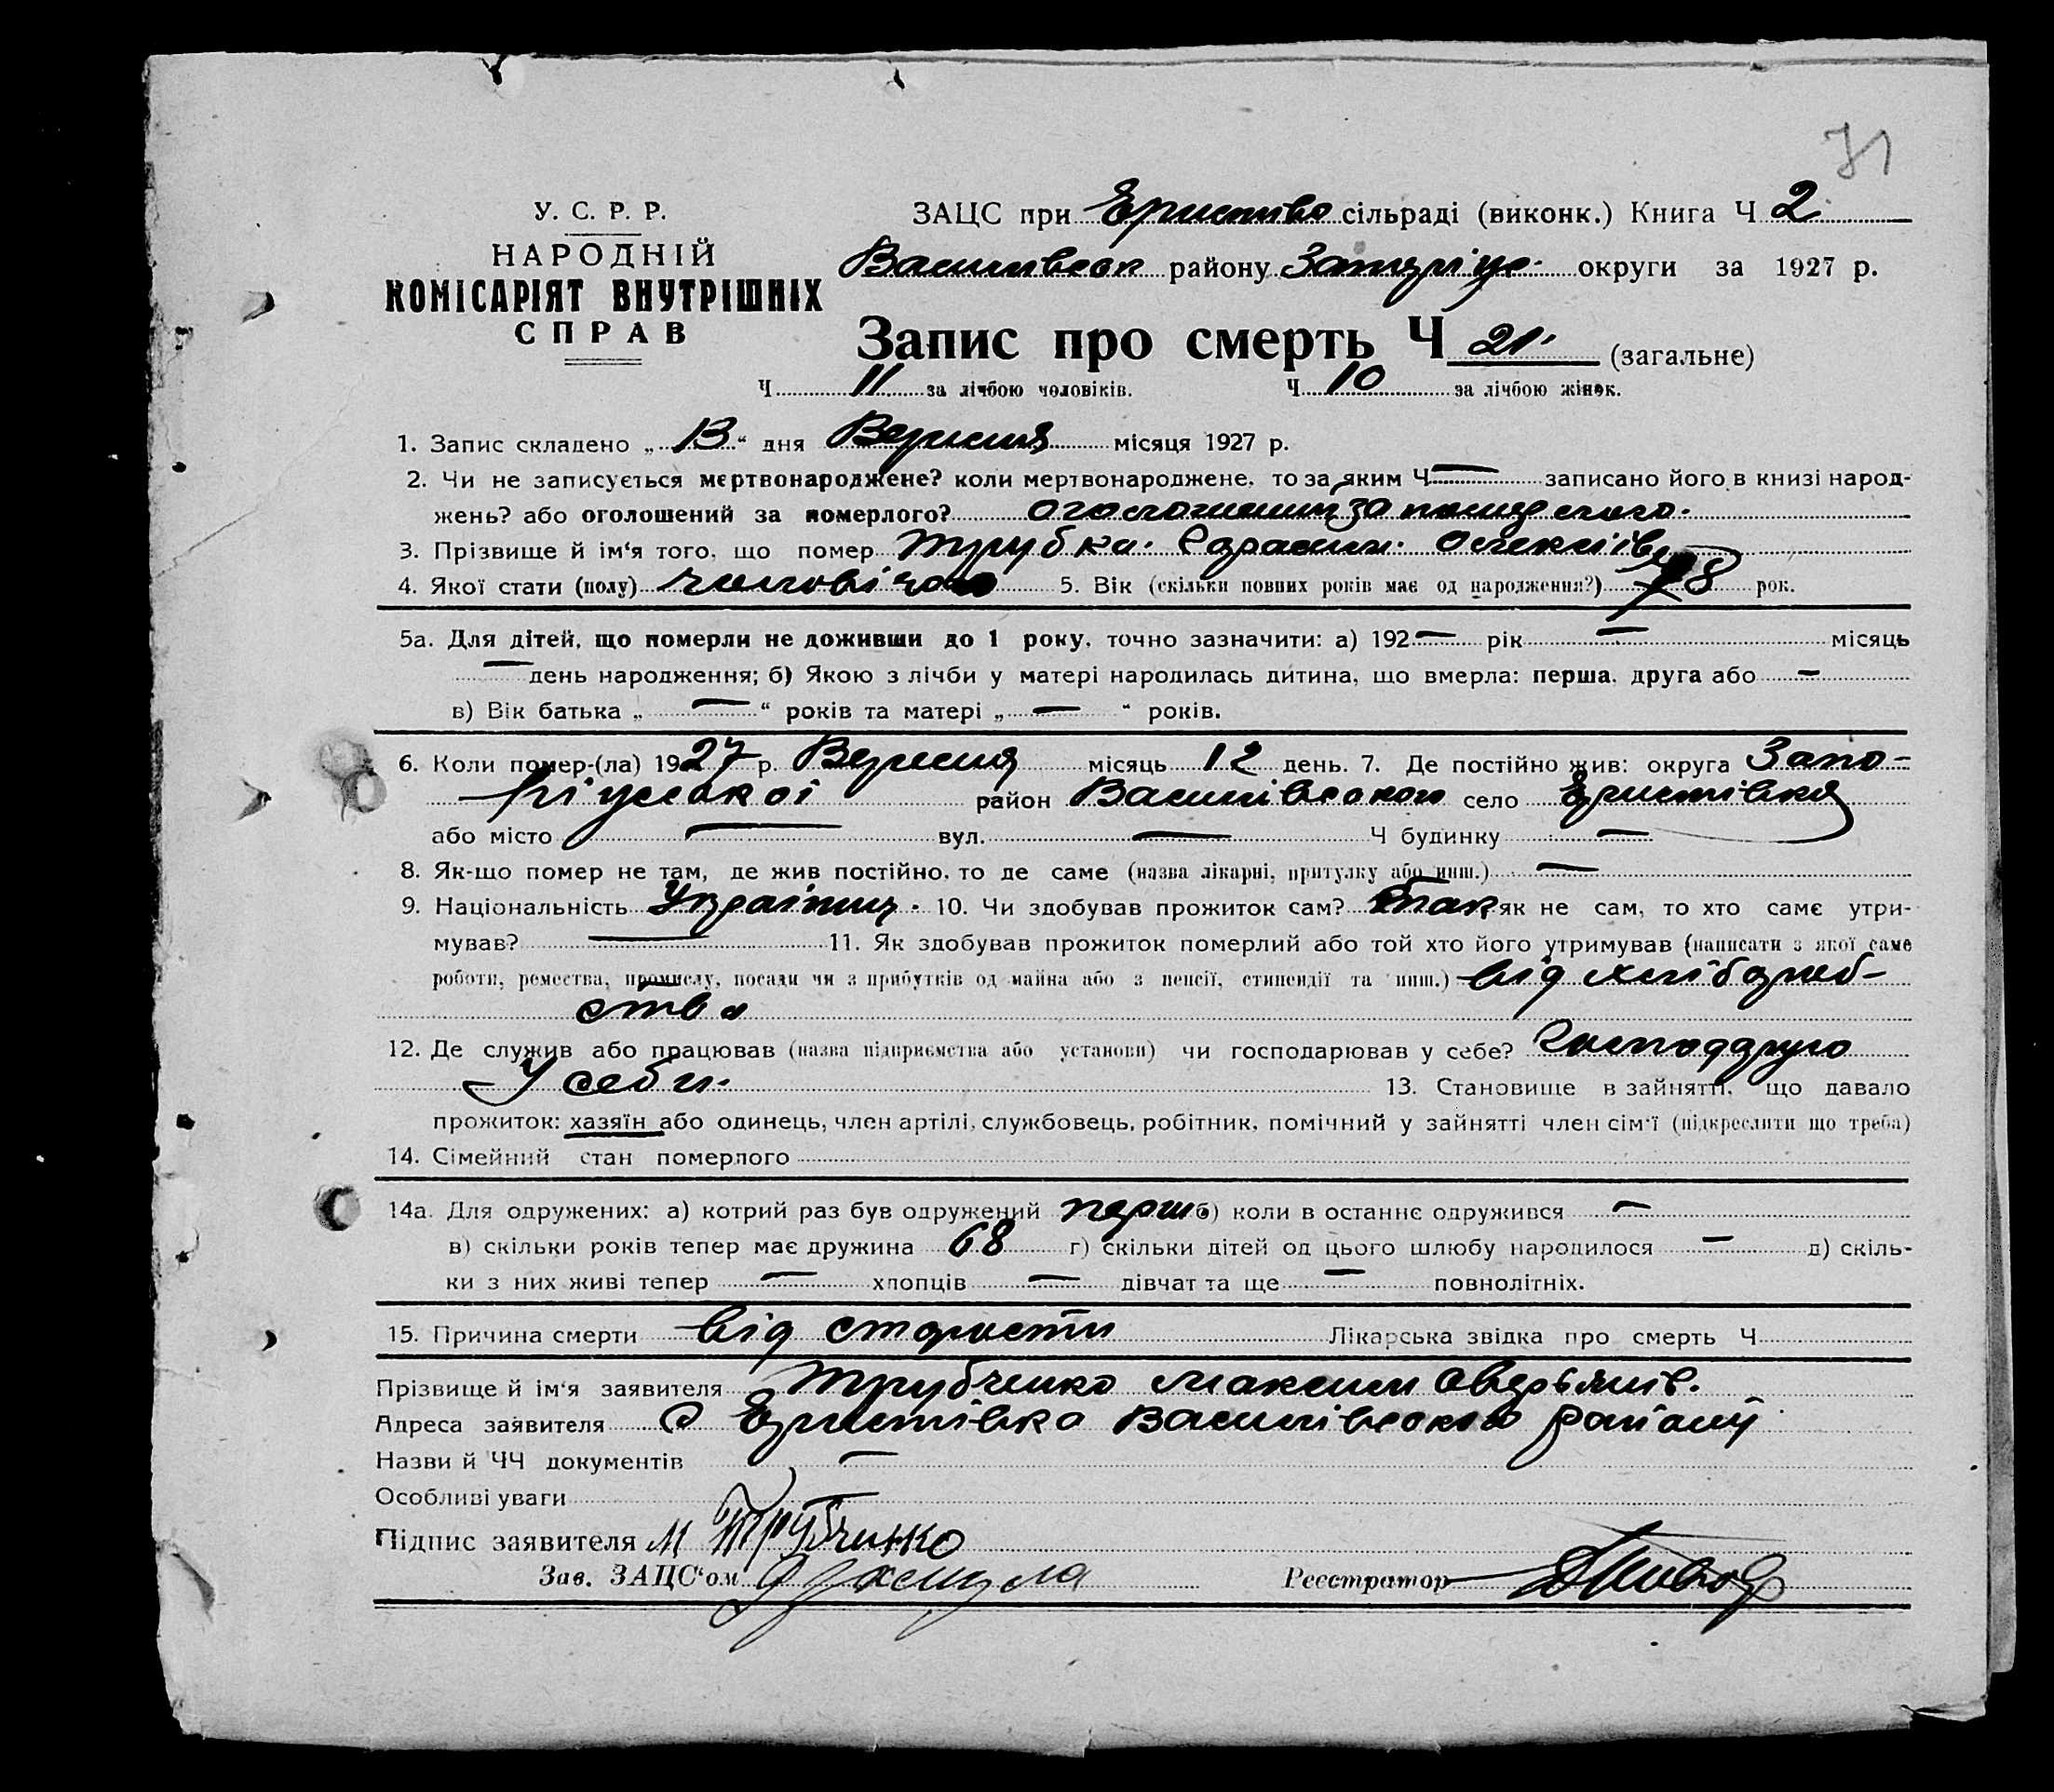 71
У. С. Р. Р.
НАРОДНІЙ
КОМІСАРІЯТ ВНУТРІШНІХ
СПРАВ
ЗАЦС при сільраді (виконк.) Книга Ч 2
району округи за 1927 р.
Запис про смерть Ч 21 (загальне)
Ч 11 за лічбою чоловіків. Ч 10 за лічбою жінок.
1. Запис складено „ 13 “ дня Вересня місяця 1927 р.
2. Чи не записується мертвонароджене? коли мертвонароджене, то за яким Ч — записано його в книзі народ-
жень? або оголошений за померлого? оголошений за померлого.
3. Прізвище й ім‘я того, що помер Трубка Олексіїв
4. Якої стати (полу) чоловічої 5. Вік (скільки повних років має од народження?) 78 рок.
5а. Для дітей, що померли не доживши до 1 року, точно зазначити: а) 192 — рік — місяць
— день народження; б) Якою з лічби у матері народилась дитина, що вмерла: перша, друга або —
в) Вік батька „ — “ років та матері „ — “ років.
6. Коли помер-(ла) 1927 р. Вересня місяць 12 день. 7. Де постійно жив: округа Запо-
ріжської район Василівського село Єристівка
або місто — вул. — Ч будинку —
8. Як-що помер не там, де жив постійно, то де саме (назва лікарні, притулку або инш.) —
9. Національність Українець 10. Чи здобував прожиток сам? так як не сам, то хто саме утри-
мував? — 11. Як здобував прожиток померлий або той хто його утримував (написати з якої саме
роботи, ремества, промислу, посади чи з прибутків од майна або з пенсії, стипендії та инш.) від хлібороб-
ства
12. Де служив або працював (назва підприємства або установи) чи господарював у себе?
У себе. 13. Становище в зайнятті, що давало
прожиток: хазяїн або одинець, член артілі, службовець, робітник, помічний у зайнятті член сім‘ї (підкреслити що треба)
14. Сімейний стан померлого
14а. Для одружених: а) котрий раз був одружений перш б) коли в останнє одружився —
в) скільки років тепер має дружина 68 г) скільки дітей од цього шлюбу народилося — д) скіль-
ки з них живі тепер — хлопців — дівчат та ще — повнолітніх.
15. Причина смерти від старости Лікарська звідка про смерть Ч
Прізвище й ім‘я заявителя Трубченко Максим
Адреса заявителя с Єристівка Василівського району
Назви й ЧЧ документів —
Особливі уваги
Підпис заявителя М Трубченко
Зав. ЗАЦС‘ом Реєстратор